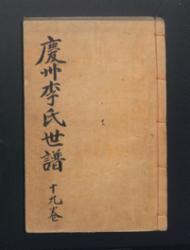 慶州李氏世譜
十九卷